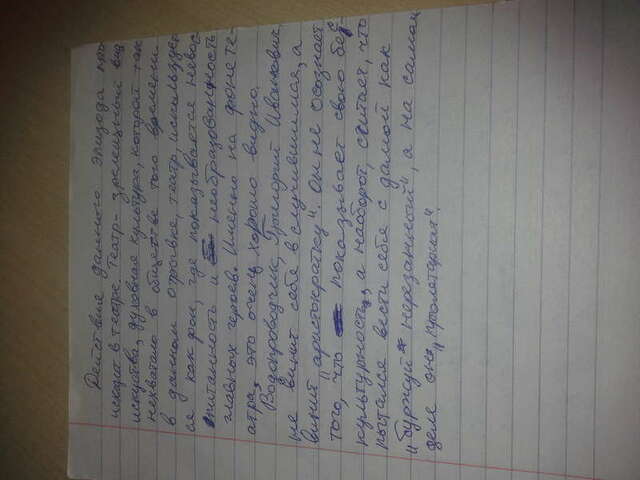 Действие данного эпизода про-
исходит в театре. Театр - зрелищный вид
искуства, духовная культура, которой так
нехватало в обществе того времени.
в данном отрывке, театр использует
ся как фон, где показывается невос
питанность и необразованность
главных героев. Именно на фоне те-
атра, это очень хорошо видно.
Водопроводчик, Григорий Иванович
не винит себя в случившимся, а
винит "аристократку". Он не осознаёт
того, что показывает свою бес-
культурность, а наоборот, считает, что
пытался вести себя с дамой как
"буржуй нерезанный", а на самом
деле она "пролетария".